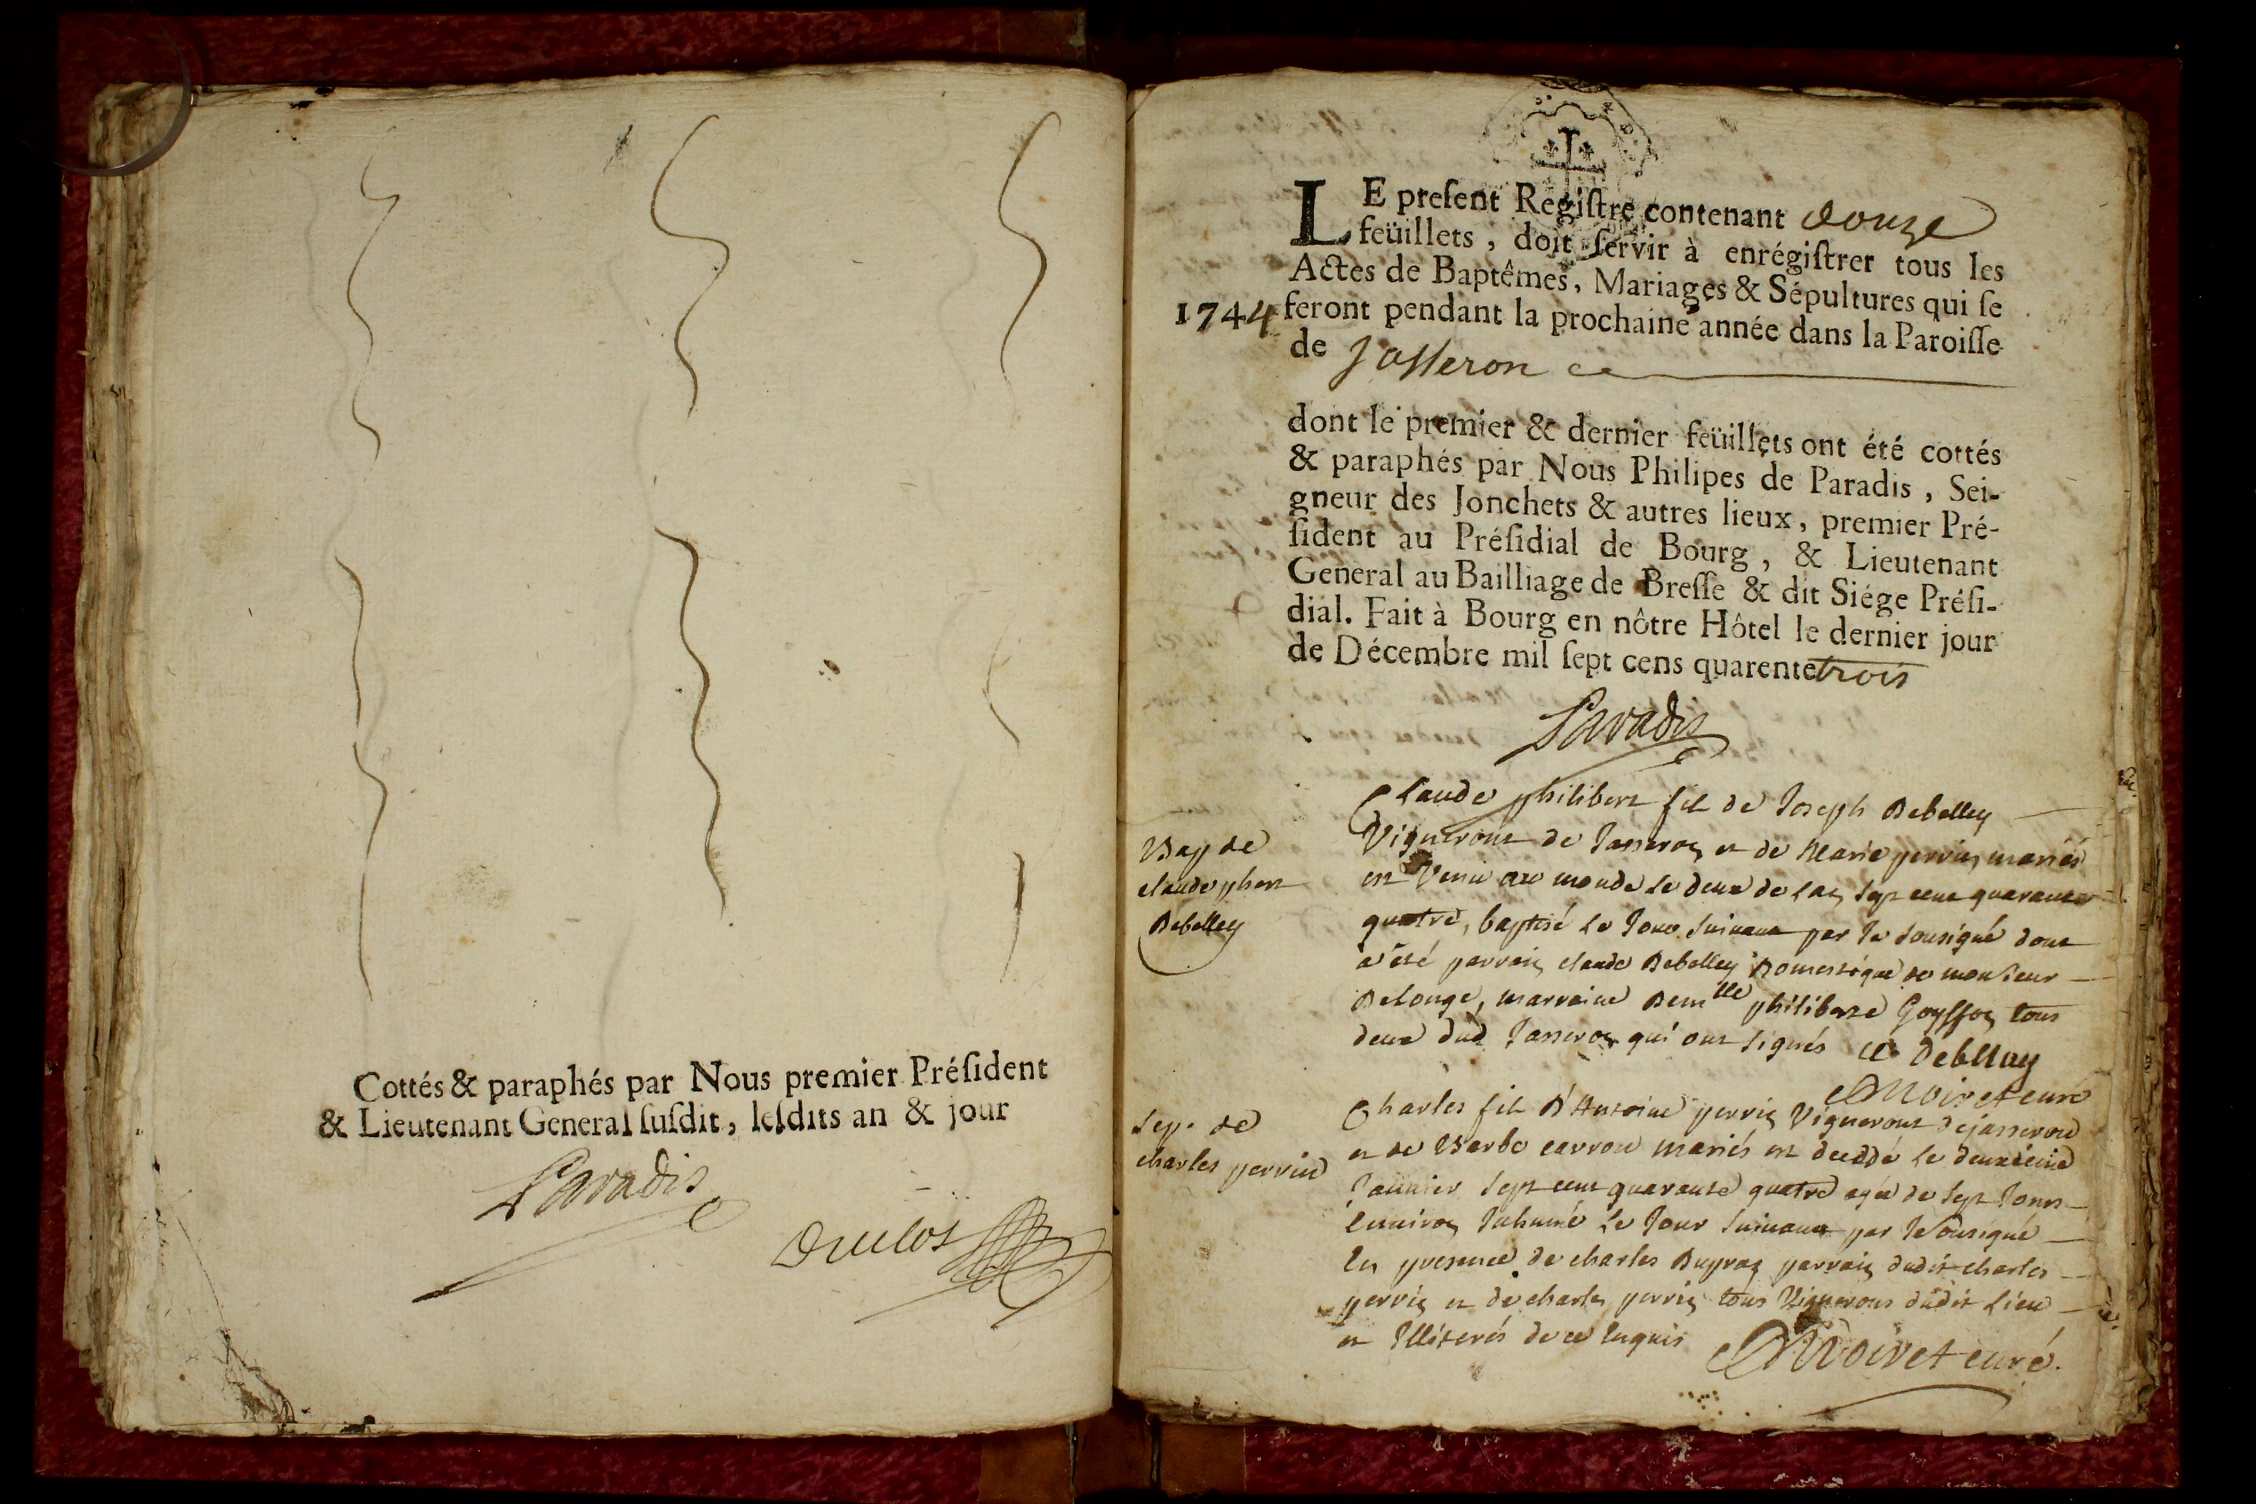 Cottés & paraphés par Nous premier Préſident
& Lieutenant General ſuſdit, leſdits an & jour
Paradis
Duclos
LE preſent Regiſtre contenant douze
feüillets, doit ſervir à enrégiſtrer tous les
Actes de Baptêmes, Mariages & Sépultures qui ſe
1744 feront pendant la prochaine année dans la Paroiſſe
de Jasseron
dont le premier & dernier feüillets ont été cottés
& paraphés par Nous Philipes de Paradis, Sei-
gneur des Jonchets & autres lieux, premier Pré-
ſident au Préſidial de Bourg, & Lieutenant
General au Bailliage de Breſſe & dit Siége Préſi-
dial. Fait à Bourg en nôtre Hôtel le dernier jour
de Décembre mil ſept cens quarente trois
Paradis
Bap de
claude phert
Debelley
Claude philibert fil de Joseph Debelley
Vigneront de Jasseron et de Marie perrin mariés
est Venu au monde le deux de lan sept cent quarante
quatre, baptisé le Jour suivant par Je sousigné dont
a été parrain claude Debelley Domestique de monsieur
Delonge, marraine Demlle philiberte Goyffon tous
deux dud Jasseron qui ont signés Cl Debelley
Moiret curé
Sep. de
charles perrin
Charles fil d'Antoine perrin Vigneront de jasseron
et de Barbe carron mariés est decedé le deuxieme
Janvier sept cent quarante quatre agée de sept Jours
Environ Inhumé le Jour suivant par Je Sousigné
En presence de charles Dupraz parrain dudit charles
perrin et de charles perrin tous Vignerons dudit Lieu
et Illiterés de ce Enquis
Moiret curé.